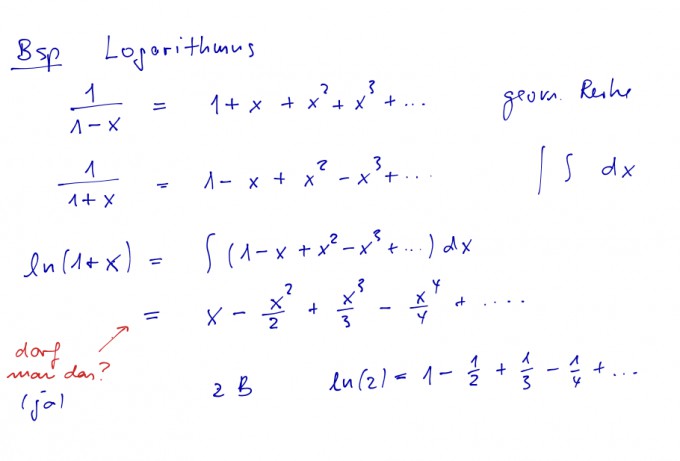 Bsp Logarithmus
1/(1-x) = 1 + x + x² + x³ + ... geom. Reihe
1/(1+x) = 1 - x + x² - x³ + ... | ∫ dx
ln(1+x) = ∫(1-x+x²-x³+...) dx
= x - x²/2 + x³/3 - x⁴/4 + ....
darf
man das?
(ja)
z B ln(2) = 1 - 1/2 + 1/3 - 1/4 + ...